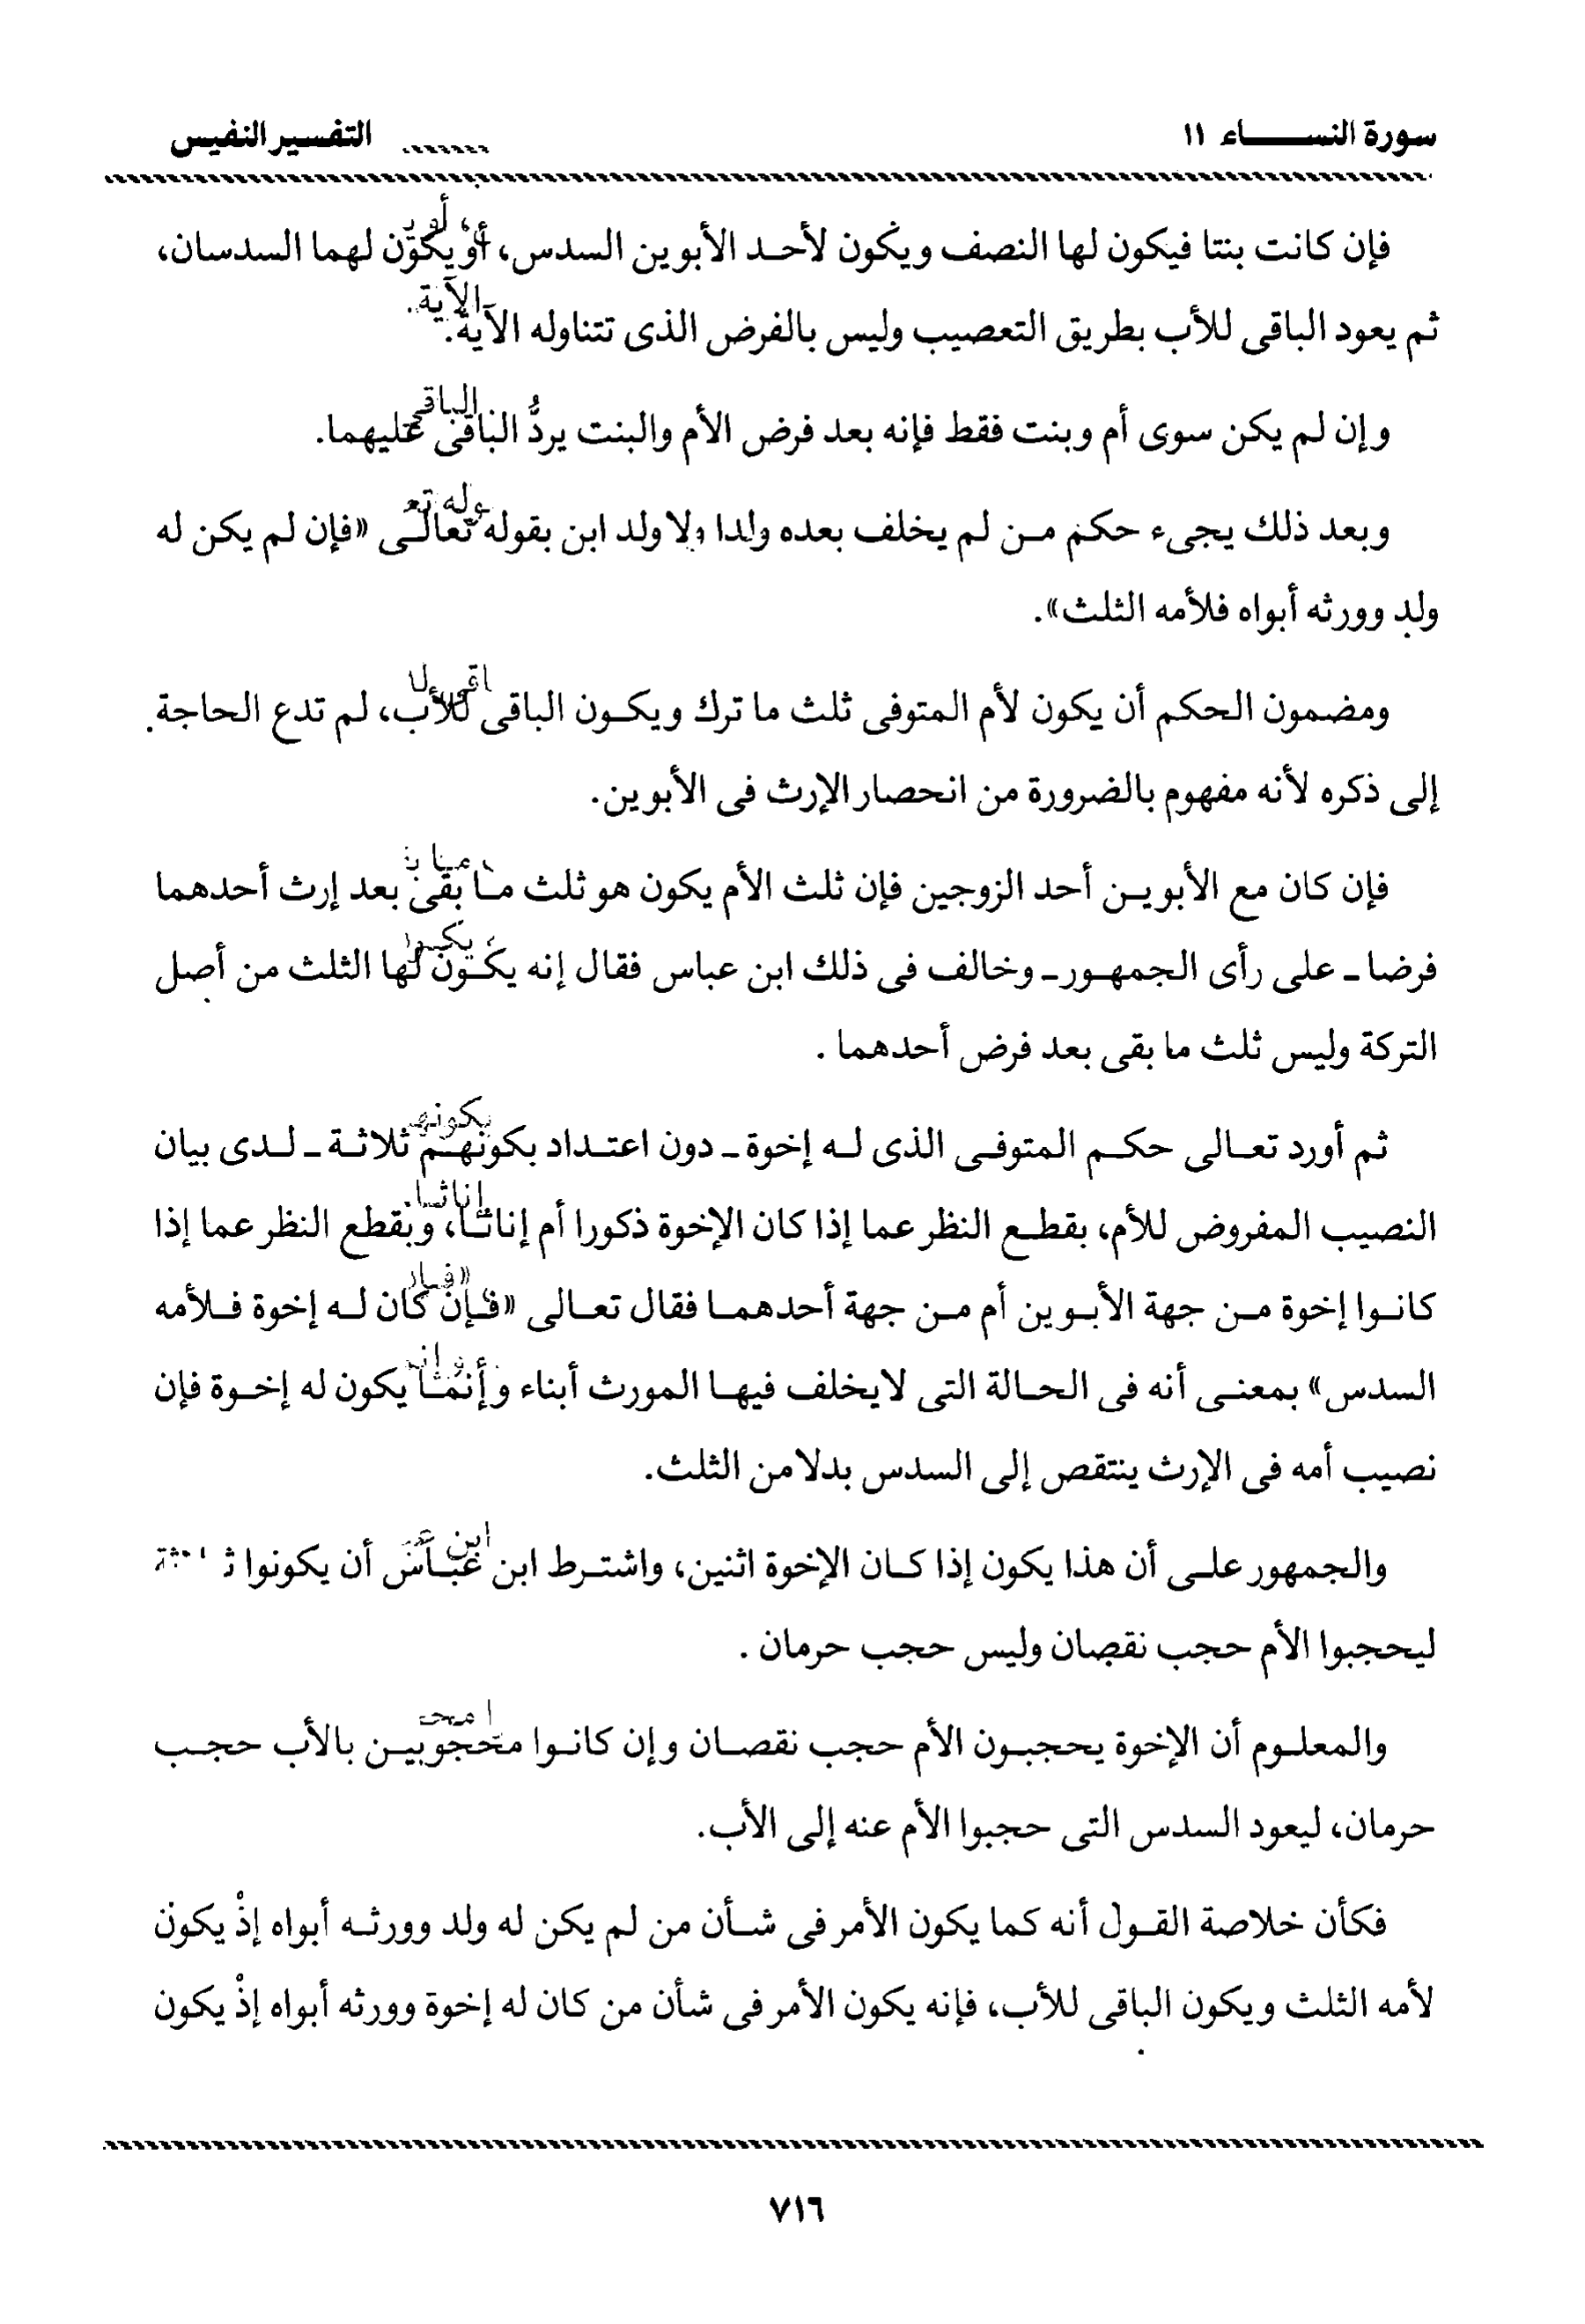 سورة النساء ١١
التفسير النفيس
فإن كانت بنتا فيكون لها النصف ويكون لأحد الأبوين السدس، أو يكون لهما السدسان،
ثم يعود الباقى للأب بطريق التعصيب وليس بالفرض الذى تتناوله الآية.
وإن لم يكن سوى أم وبنت فقط فإنه بعد فرض الأم والبنت يردُّ الباقى عليهما.
وبعد ذلك يجىء حكم من لم يخلف بعده ولدا ولا ولد ابن بقوله تعالى «فإن لم يكن له
ولد وورثه أبواه فلأمه الثلث».
ومضمون الحكم أن يكون لأم المتوفى ثلث ما ترك ويكون الباقى للأب، لم تدع الحاجة
إلى ذكره لأنه مفهوم بالضرورة من انحصار الإرث فى الأبوين.
فإن كان مع الأبوين أحد الزوجين فإن ثلث الأم يكون هو ثلث ما بقى بعد إرث أحدهما
فرضا ـ على رأى الجمهور ـ وخالف فى ذلك ابن عباس فقال إنه يكون لها الثلث من أصل
التركة وليس ثلث ما بقى بعد فرض أحدهما .
ثم أورد تعالى حكم المتوفى الذى له إخوة ـ دون اعتداد بكونهم ثلاثة ـ لدى بيان
النصيب المفروض للأم، بقطع النظر عما إذا كان الإخوة ذكورا أم إناثا، وبقطع النظر عما إذا
كانوا إخوة من جهة الأبوين أم من جهة أحدهما فقال تعالى «فإن كان له إخوة فلأمه
السدس» بمعنى أنه فى الحالة التى لا يخلف فيها المورث أبناء وأنما يكون له إخوة فإن
نصيب أمه فى الإرث ينتقص إلى السدس بدلا من الثلث.
والجمهور على أن هذا يكون إذا كان الإخوة اثنين، واشترط ابن عباس أن يكونوا
ليحجبوا الأم حجب نقصان وليس حجب حرمان .
والمعلوم أن الإخوة يحجبون الأم حجب نقصان وإن كانوا محجوبين بالأب حجب
حرمان، ليعود السدس التى حجبوا الأم عنه إلى الأب.
فكأن خلاصة القول أنه كما يكون الأمر فى شأن من لم يكن له ولد وورثه أبواه إذْ يكون
لأمه الثلث ويكون الباقى للأب، فإنه يكون الأمر فى شأن من كان له إخوة وورثه أبواه إذْ يكون
٧١٦